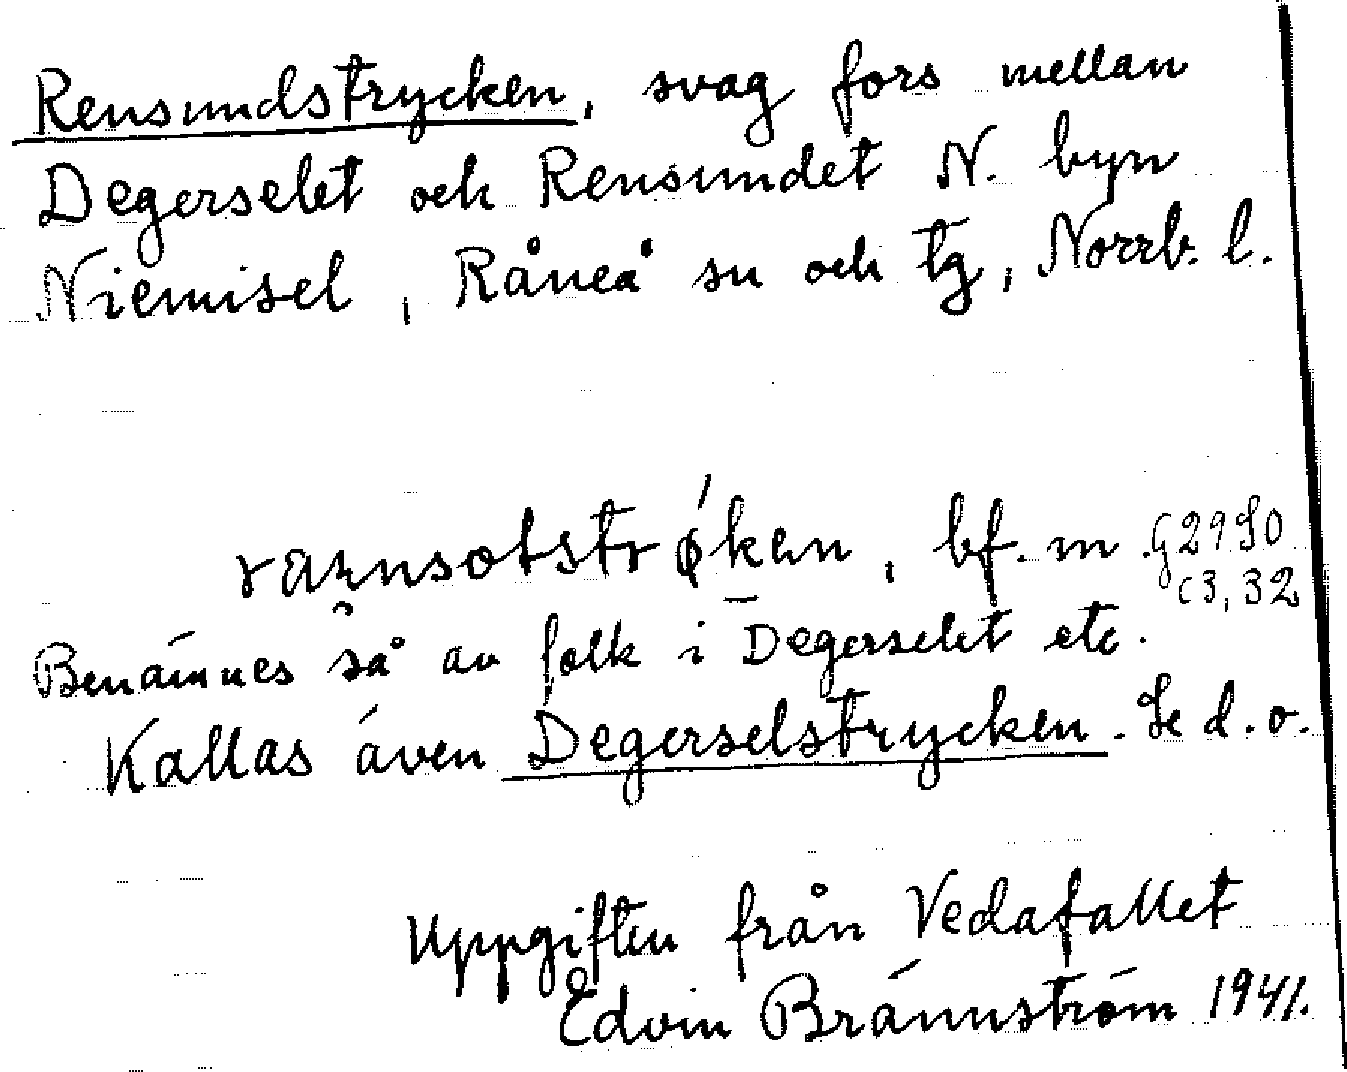 Rensundstrycken, svag fors mellan
Degerselet och Rensundet N. byn
Niemisel, Råneå sn och tg, Norrb. l.
bf. m. G2950
C3, 32
Benämnes så av folk i Degerselet etc.
Kallas även Degerselstrycken. Se d. o.
Uppgiften från Vedafallet
Edvin Brännström 1941.